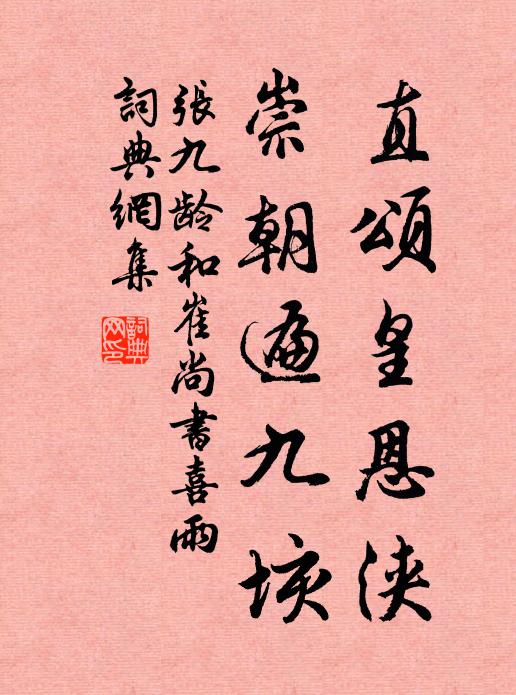 直頌皇恩浹
崇朝遍九垓
張九齡和崔尚書喜雨
詞典網集
詞典網印